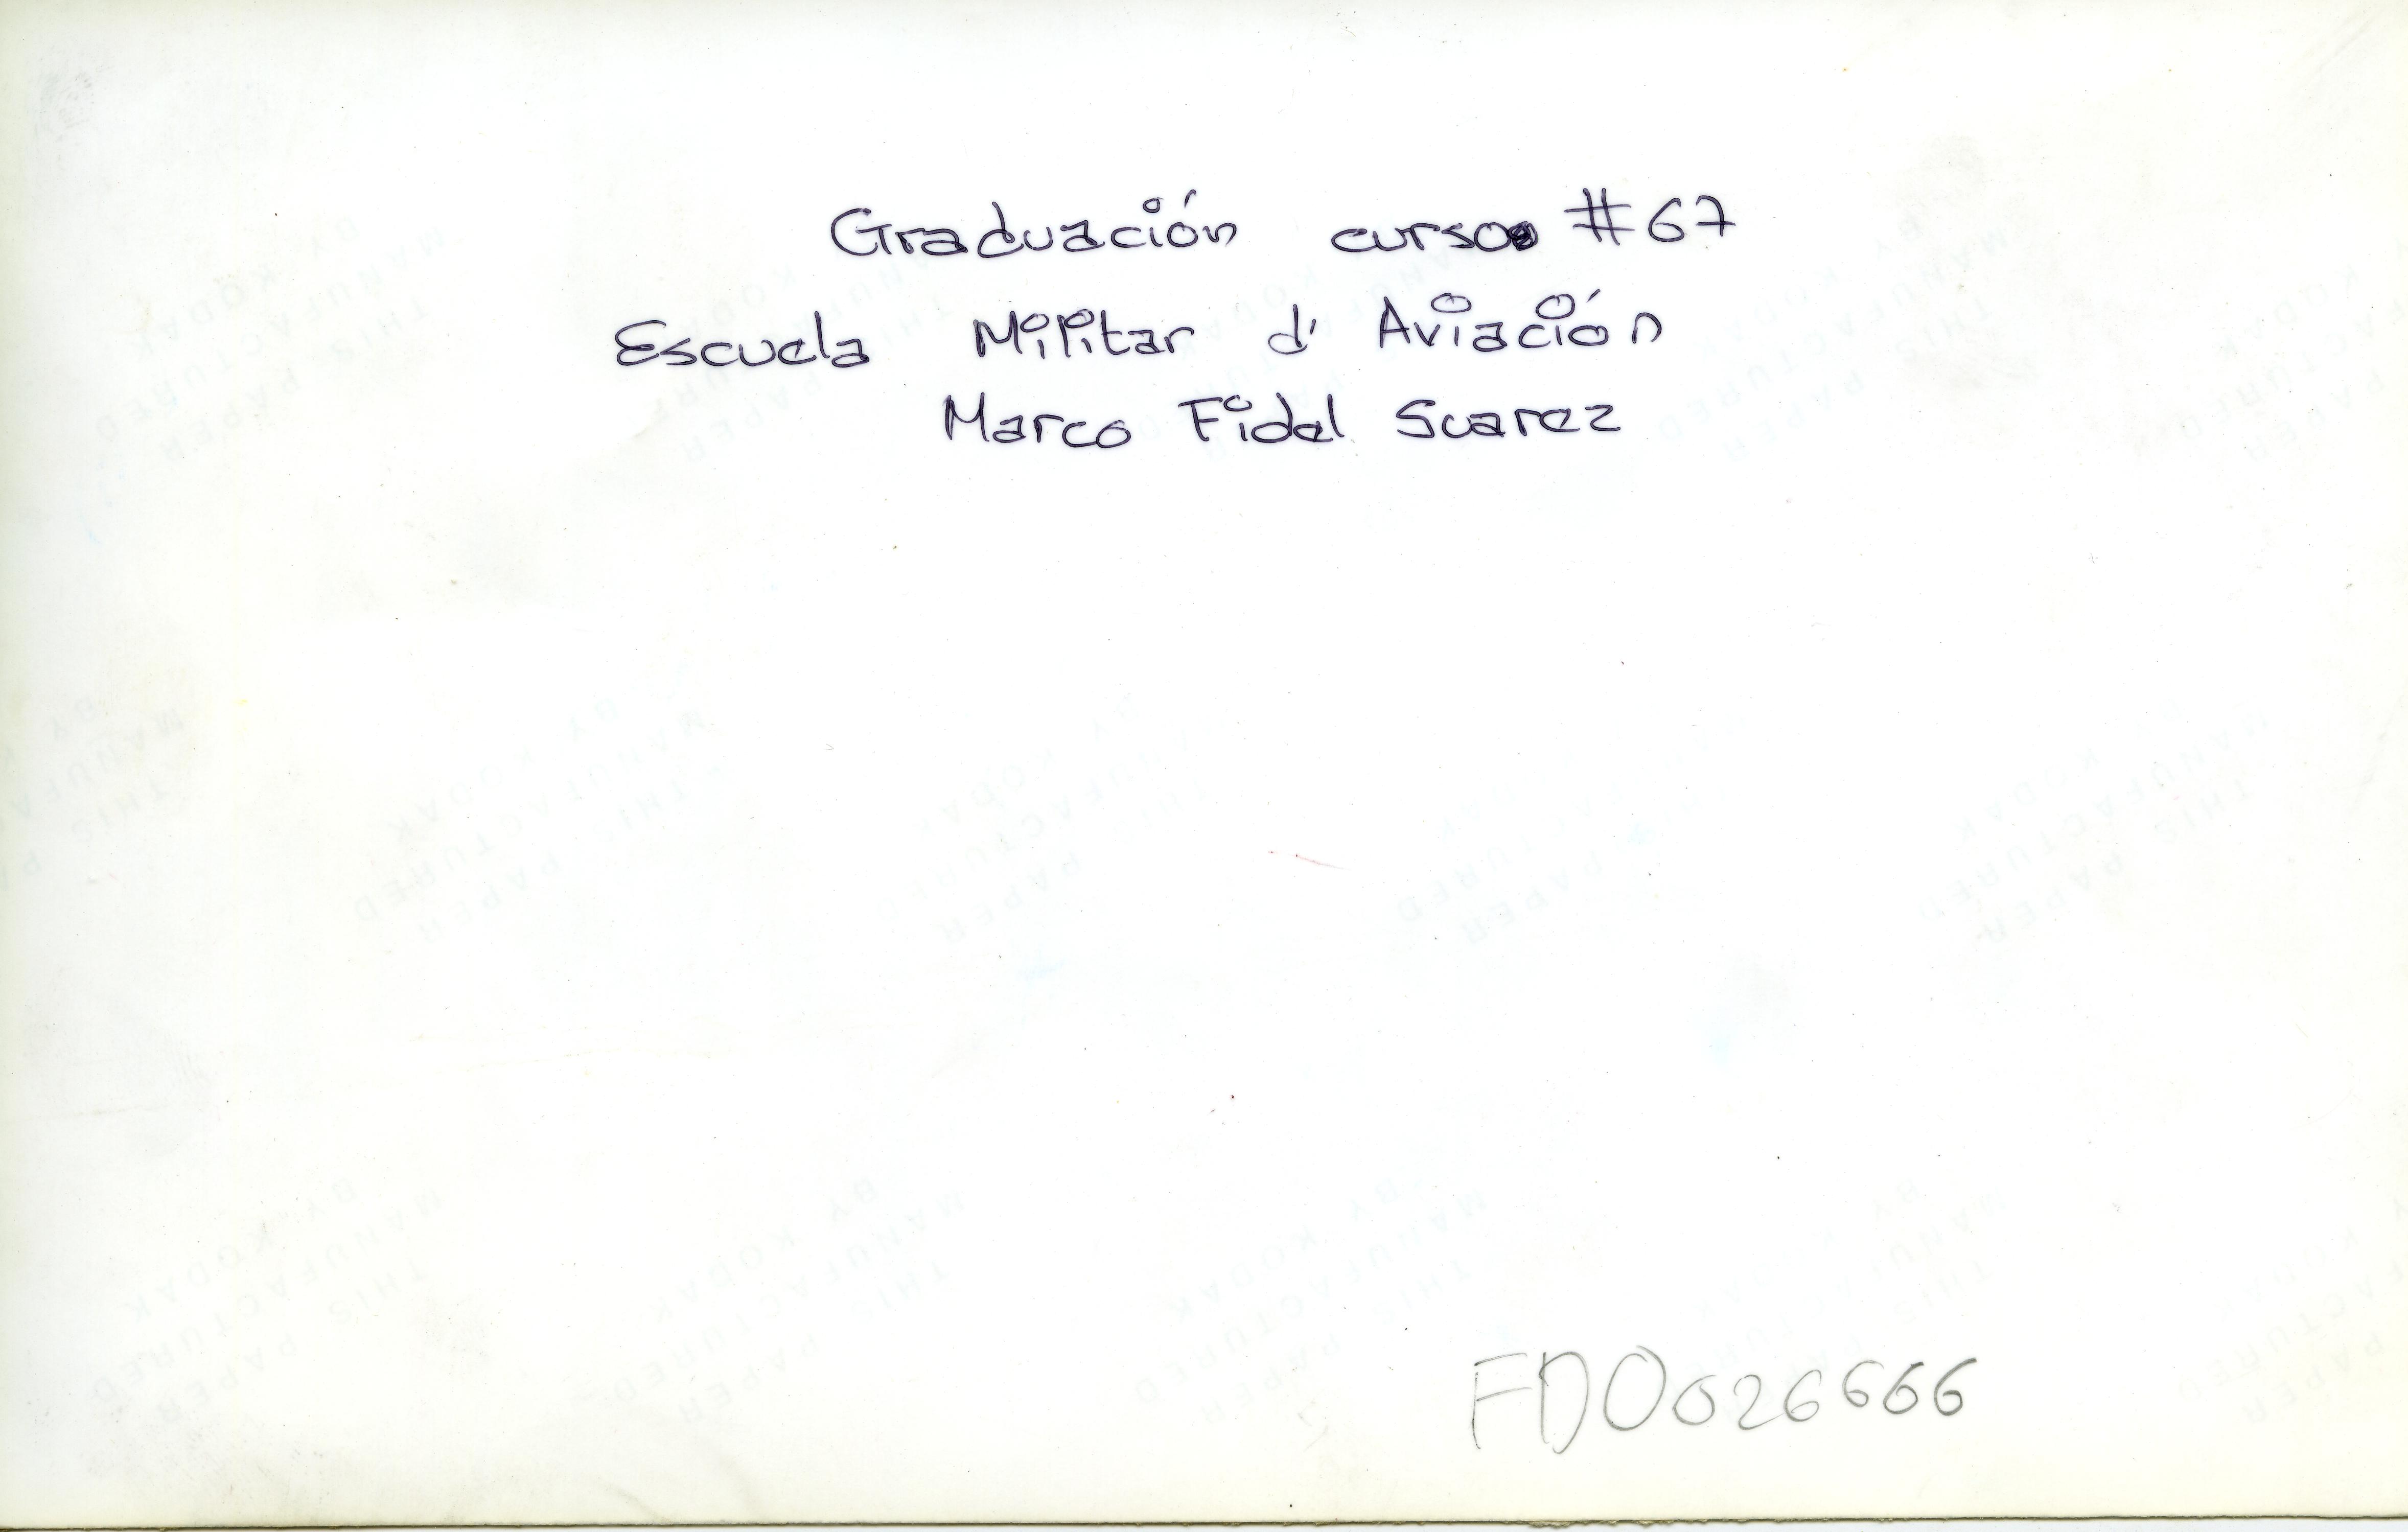 Graduación curso #67
Escuela Militar d' Aviación
Marco Fidel Suarez
FDO026666